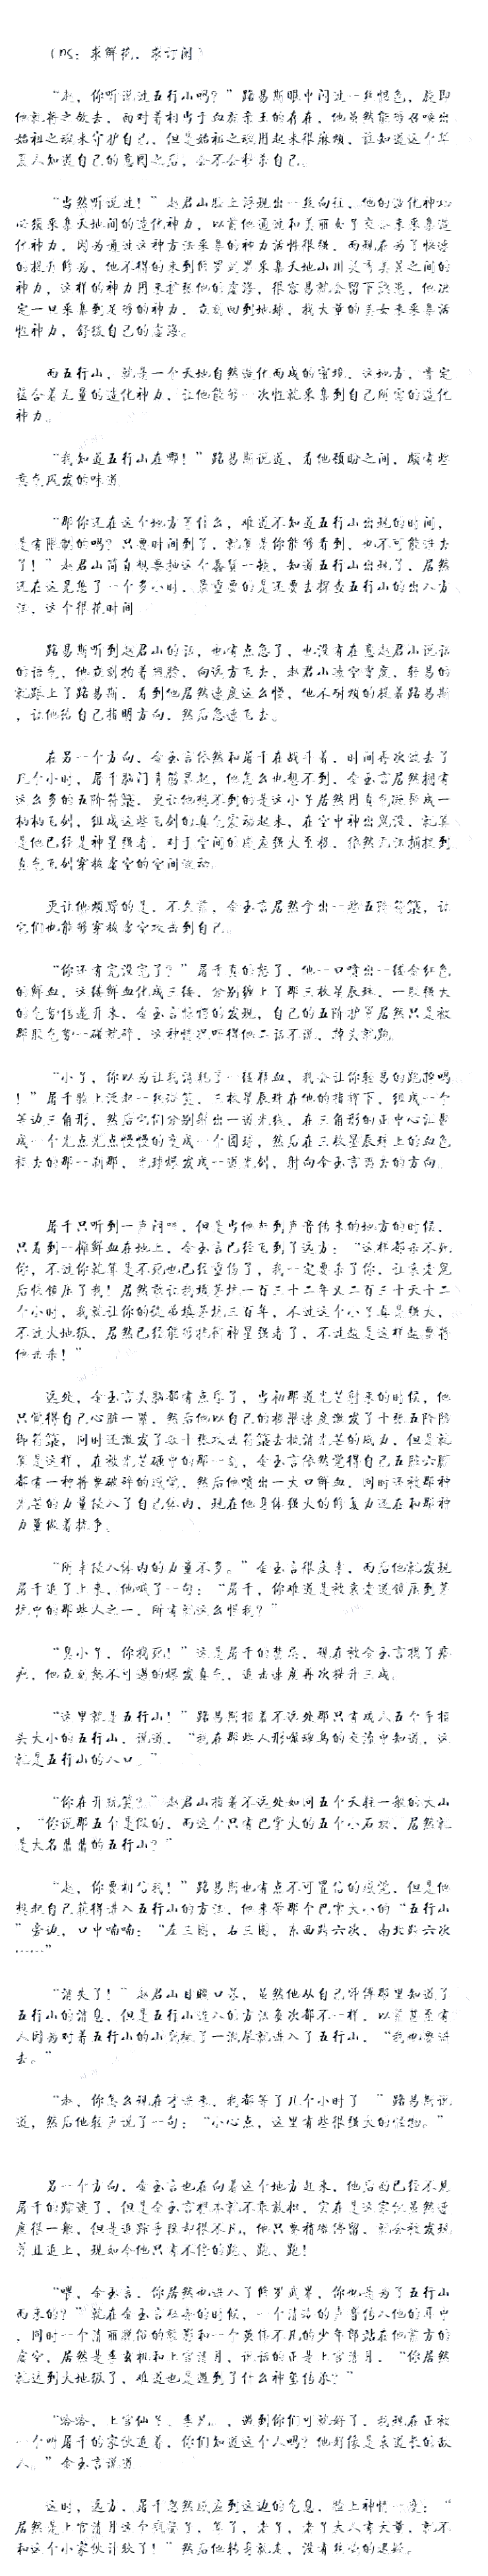 （ps：求鲜花，求订阅）
“赵，你听说过五行山吗？”路易斯眼中闪过一丝恨色，旋即
他就将之敛去，面对着相当于血族亲王的存在，他虽然能够召唤出
始祖之魂来守护自己，但是始祖之魂用起来很麻烦，谁知道这个华
夏人知道自己的意图之后，会不会秒杀自己。
“当然听说过！”赵君山脸上浮现出一丝向往，他的造化神功
必须采集天地间的造化神力，以前他通过和美丽女子交合来采集造
化神力，因为通过这种方法采集的神力活性很强，而现在为了快速
的提升修为，他不得的来到修罗武界采集天地山川灵秀美景之间的
神力，这样的神力用来扩张他的虚海，很容易就会留下隐患，他决
定一旦采集到足够的神力，立刻回到地球，找大量的美女来采集活
性神力，舒缓自己的虚海。
而五行山，就是一个天地自然造化而成的密境，这地方，肯定
蕴含着无量的造化神力，让他能够一次性就采集到自己所需的造化
神力。
“我知道五行山在哪！”路易斯说道，看他顾盼之间，颇有些
意气风发的味道
“那你还在这个地方等什么，难道不知道五行山出现的时间，
是有限制的吗？只要时间到了，就算是你能够看到，也不可能进去
了！”赵君山简直想要抽这个蠢货一顿，知道五行山出现了，居然
还在这晃悠了一个多小时，最重要的是还要去探查五行山的出入方
法，这个很花时间
路易斯听到赵君山的话，也有点急了，也没有在意赵君山说话
的语气，他立刻拍着翅膀，向远方飞去，赵君山凌空虚度，轻易的
就跟上了路易斯，看到他居然速度这么慢，他不耐烦的提着路易斯
，让他给自己指明方向，然后急速飞去。
在另一个方向，金玉言依然和居千在战斗着，时间再次过去了
几个小时，居千脑门青筋暴起，他怎么也想不到，金玉言居然拥有
这么多的五阶符箓，更让他想不到的是这小子居然用真气凝聚成一
柄柄飞剑，组成这些飞剑的真气震动起来，在空中神出鬼没，就算
是他已经是神星强者，对于空间的感应强大至极，依然无法捕捉到
真气飞剑穿梭虚空的空间波动
更让他烦躁的是，不久前，金玉言居然拿出一些五阶符箓，让
它们也能够穿梭虚空攻击到自己。
“你还有完没完了？”居千真的怒了，他一口喷出一缕金红色
的鲜血，这缕鲜血化成三缕，分别缠上了那三枚星辰珠，一股强大
的气势传递开来，金玉言惊愕的发现，自己的五阶护罩居然只是被
那股气势一碰就碎，这种情况吓得他二话不说，掉头就跑。
“小子，你以为让我消耗了一缕精血，我会让你轻易的跑掉吗
！”居千脸上泛起一丝冷笑，三枚星辰珠在他的指挥下，组成一个
等边三角形，然后它们分别射出一道光线，在三角形的正中心汇聚
成一个光点光点慢慢的变成一个圆球，然后在三枚星辰珠上的血色
褪去的那一刹那，光球爆发成一道光剑，射向金玉言离去的方向。
居千只听到一声闷哼，但是当他赶到声音传来的地方的时候，
只看到一摊鲜血在地上，金玉言已经飞到了远方：“这样都杀不死
你，不过你就算是不死也已经重伤了，我一定要杀了你，让袁老鬼
后悔镇压了我！居然敢让我填茅坑一百三十二年又二百三十天十二
个小时，我就让你的徒弟填茅坑三百年，不过这个小子真是强大，
不过大地级，居然已经能够抗衡神星强者了，不过越是这样越要将
他击杀！”
远处，金玉言头脑都有点晕了，当初那道光芒射来的时候，他
只觉得自己心脏一紧，然后他以自己的极限速度激发了十张五阶防
御符箓，同时还激发了数十张攻击符箓去抵消光芒的威力，但是就
算是这样，在被光芒砸中的那一刻，金玉言依然觉得自己五脏六腑
都有一种将要破碎的感觉，然后他喷出一大口鲜血，同时还被那种
光芒的力量侵入了自己体内，现在他身体强大的修复力还在和那种
力量做着抗争。
“所幸侵入体内的力量不多。”金玉言很庆幸，而后他就发现
居千追了上来，他喊了一句：“居千，你难道是被袁老道镇压到茅
坑中的那些人之一，所有就这么恨我？”
“臭小子，你找死！”这是居千的禁忌，现在被金玉言揭了疮
疤，他立刻怒不可遏的爆发真气，追击速度再次提升三成。
“这里就是五行山！”路易斯指着不远处那只有成人五个手指
头大小的五行山，说道，“我在那些人形嗜魂鸟的交流中知道，这
就是五行山的入口。”
“你在开玩笑？”赵君山指着不远处如同五个天柱一般的大山
，“你说那五个是假的，而这个只有巴掌大的五个小石块，居然就
是大名鼎鼎的五行山？”
“赵，你要相信我！”路易斯也有点不可置信的感觉，但是他
想起自己获得进入五行山的方法，他来带那个巴掌大小的“五行山
”旁边，口中喃喃：“左三圈，右三圈，东西跨六次，南北跨六次
……”
“消失了！”赵君山目瞪口呆，虽然他从自己师傅那里知道了
五行山的消息，但是五行山进入的方法每次都不一样，以前甚至有
人因为对着五行山的山壳撒了一泡尿就进入了五行山，“我也要进
去。”
“赵，你怎么现在才进来，我都等了几个小时了。”路易斯说
道，然后他轻声说了一句：“小心点，这里有些很强大的怪物。”
另一个方向，金玉言也在向着这个地方赶来，他后面已经不见
居千的踪迹了，但是金玉言根本就不敢放松，实在是这家伙虽然速
度很一般，但是追踪手段却很不凡，他只要稍微停留，就会被发现
并且追上，现如今他只有不停的跑、跑、跑！
“喂，金玉言，你居然也进入了修罗武界，你也是为了五行山
而来的？”就在金玉言狂奔的时候，一个清脆的声音传入他的耳中
，同时一个清丽脱俗的身影和一个英伟不凡的少年郎站在他前方的
虚空，居然是李玄机和上官清月，说话的正是上官清月，“你居然
就达到大地级了，难道也是遇到了什么神玺传承？”
“哈哈，上官仙子，李兄，，遇到你们可就好了，我现在正被
一个叫居千的家伙追着，你们知道这个人吗？他好像是袁道长的敌
人。”金玉言说道
这时，远方，居千忽然感应到这边的气息，脸上神情一变：“
居然是上官清月这个疯婆子，算了，老子，老子大人有大量，就不
和这个小家伙计较了！”然后他转身就走，没有丝毫的迟疑。